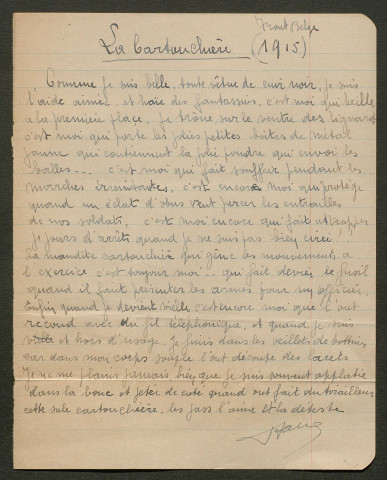 Front Belge
La Cartouchière (1915)
Comme je suis belle, toute vêtue de cuir noir, je suis
l'aide aimée et haïe des fantassins, c'est moi qui
à la première place, je trône sur le ventre des lignards
c'est moi qui porte les jolies petites boîtes de métal
jaune qui contiennent la jolie poudre qui envoi les
balles... c'est moi qui fait souffrir pendant les
marches c'est encore moi qui protège
quand un éclat d'obus veut percer les entrailles
de nos soldats, c'est moi encore qui fait attrapper
jours d'arrêts quand je ne suis pas bien cirée!
La maudite cartouchière qui gêne les mouvements à
l'exercice c'est toujours moi... qui fait devier le fusil
quand il faut présenter les armes pour un officier.
Enfin quand je devient vieille c'est encore moi que l'out
recoud avec du fil téléphonique, et quand je suis
vieille et hors d'usage, je finis dans les
car dans mon corps souple l'out découpe des lacets
Je ne me plains jamais bien que je suis souvent applatie
dans la boue et jeter de coté quand out fait du tirailleur
cette sale cartouchière, les jass l'aime et la déteste